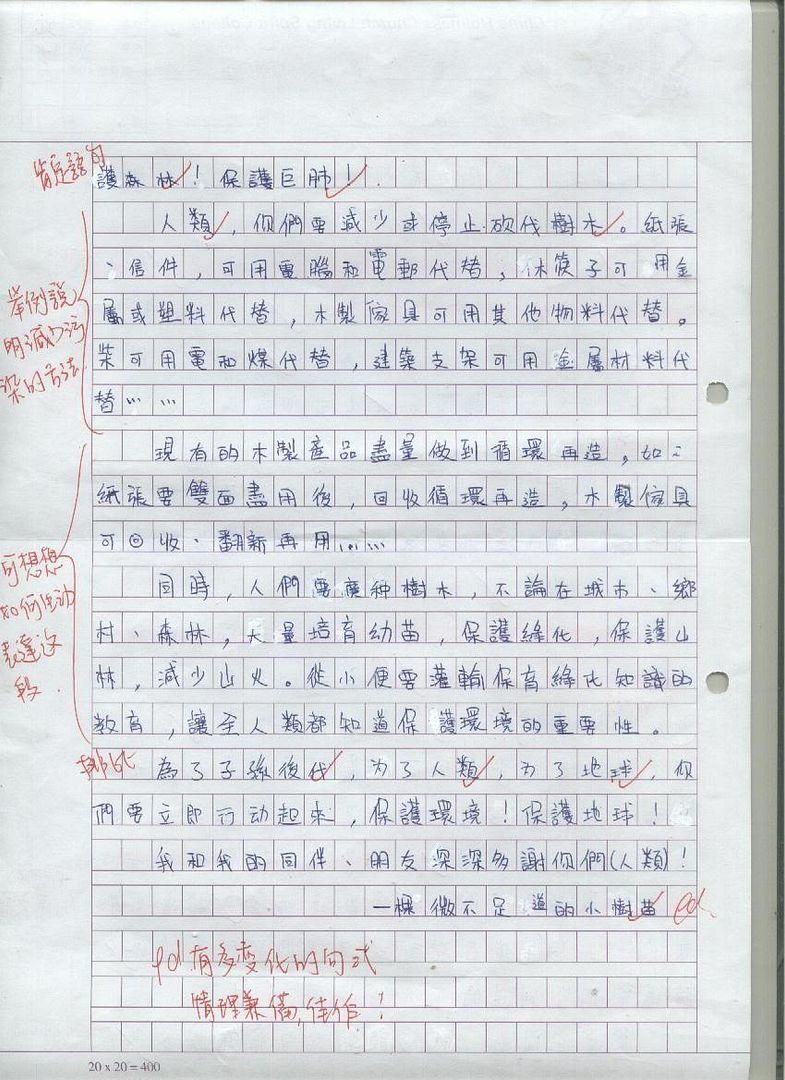 護森林！保護巨肺！
人類，你們要減少或停止砍伐樹木。紙張
、信件，可用電腦和電郵代替，木筷子可用金
屬或塑料代替，木製傢具可用其他物料代替。
柴可用電和煤代替，建築支架可用金屬材料代
替……
現有的木製產品盡量做到循環再造，如：
紙張要雙面盡用後，回收循環再造，木製傢具
可回收、翻新再用……
同時，人們要廣种樹木，不論在城市、鄉
村、森林，大量培育幼苗，保護綠化，保護山
林，減少山火。從小便要灌輸保育綠化知識的
教育，讓全人類都知道保護環境的重要性。
為了子孫後代，为了人類，为了地球，你
們要立即行动起來，保護環境！保護地球！
我和我的同伴、朋友深深多謝你們(人類)！
一棵微不足道的小樹苗
肯定語句
舉例說
明減少污
染的方法
可想想
如何生动
表達這
段.
排比
有多变化的句式
情理兼備，佳作！
20 x 20 = 400